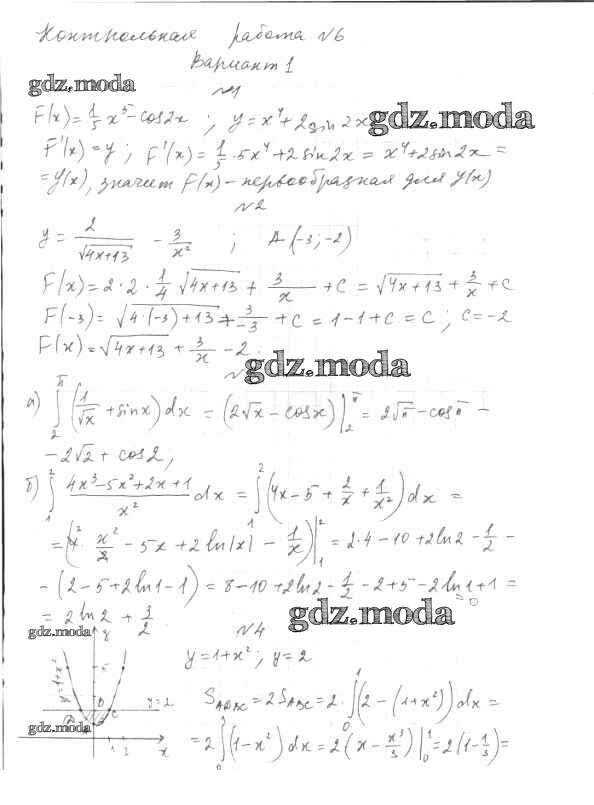 Контрольная работа №6
Вариант 1
gdz.moda
№1
F(x)=1/5 x⁵-cos2x ; y=x⁴+2sin2x
gdz.moda
F'(x)=y ; F'(x)=1/5·5x⁴+2sin2x=x⁴+2sin2x=
=y(x), значит F(x)-первообразная для y(x)
№2
y=2/√(4x+13) - 3/x² ; A(-3;-2)
F(x)=2·2·1/4 √(4x+13) + 3/x +C=√(4x+13)+3/x+C
F(-3)=√(4·(-3)+13)+3/-3 +C=1-1+C=C ; C=-2
F(x)=√(4x+13)+3/x-2.
gdz.moda
а) ∫₂^π (1/√x+sinx)dx=(2√x-cosx)|₂^π=2√π-cosπ-
-2√2+cos2;
б) ∫₁² (4x³-5x²+2x+1)/x² dx=∫₁²(4x-5+2/x+1/x²)dx=
=(4·x²/2-5x+2ln|x|-1/x)|₁²=2·4-10+2ln2-1/2-
-(2-5+2ln1-1)=8-10+2ln2-1/2-2+5-2ln1+1=
=0
=2ln2+3/2.
gdz.moda
№4
gdz.moda
y
y=1+x²; y=2
y=1+x²
5
S_ADBC=2S_ABC=2·∫₀¹(2-(1+x²))dx=
y=2
D
C
gdz.moda
=2∫₀¹(1-x²)dx=2(x-x³/3)|₀¹=2(1-1/3)=
1 2 x